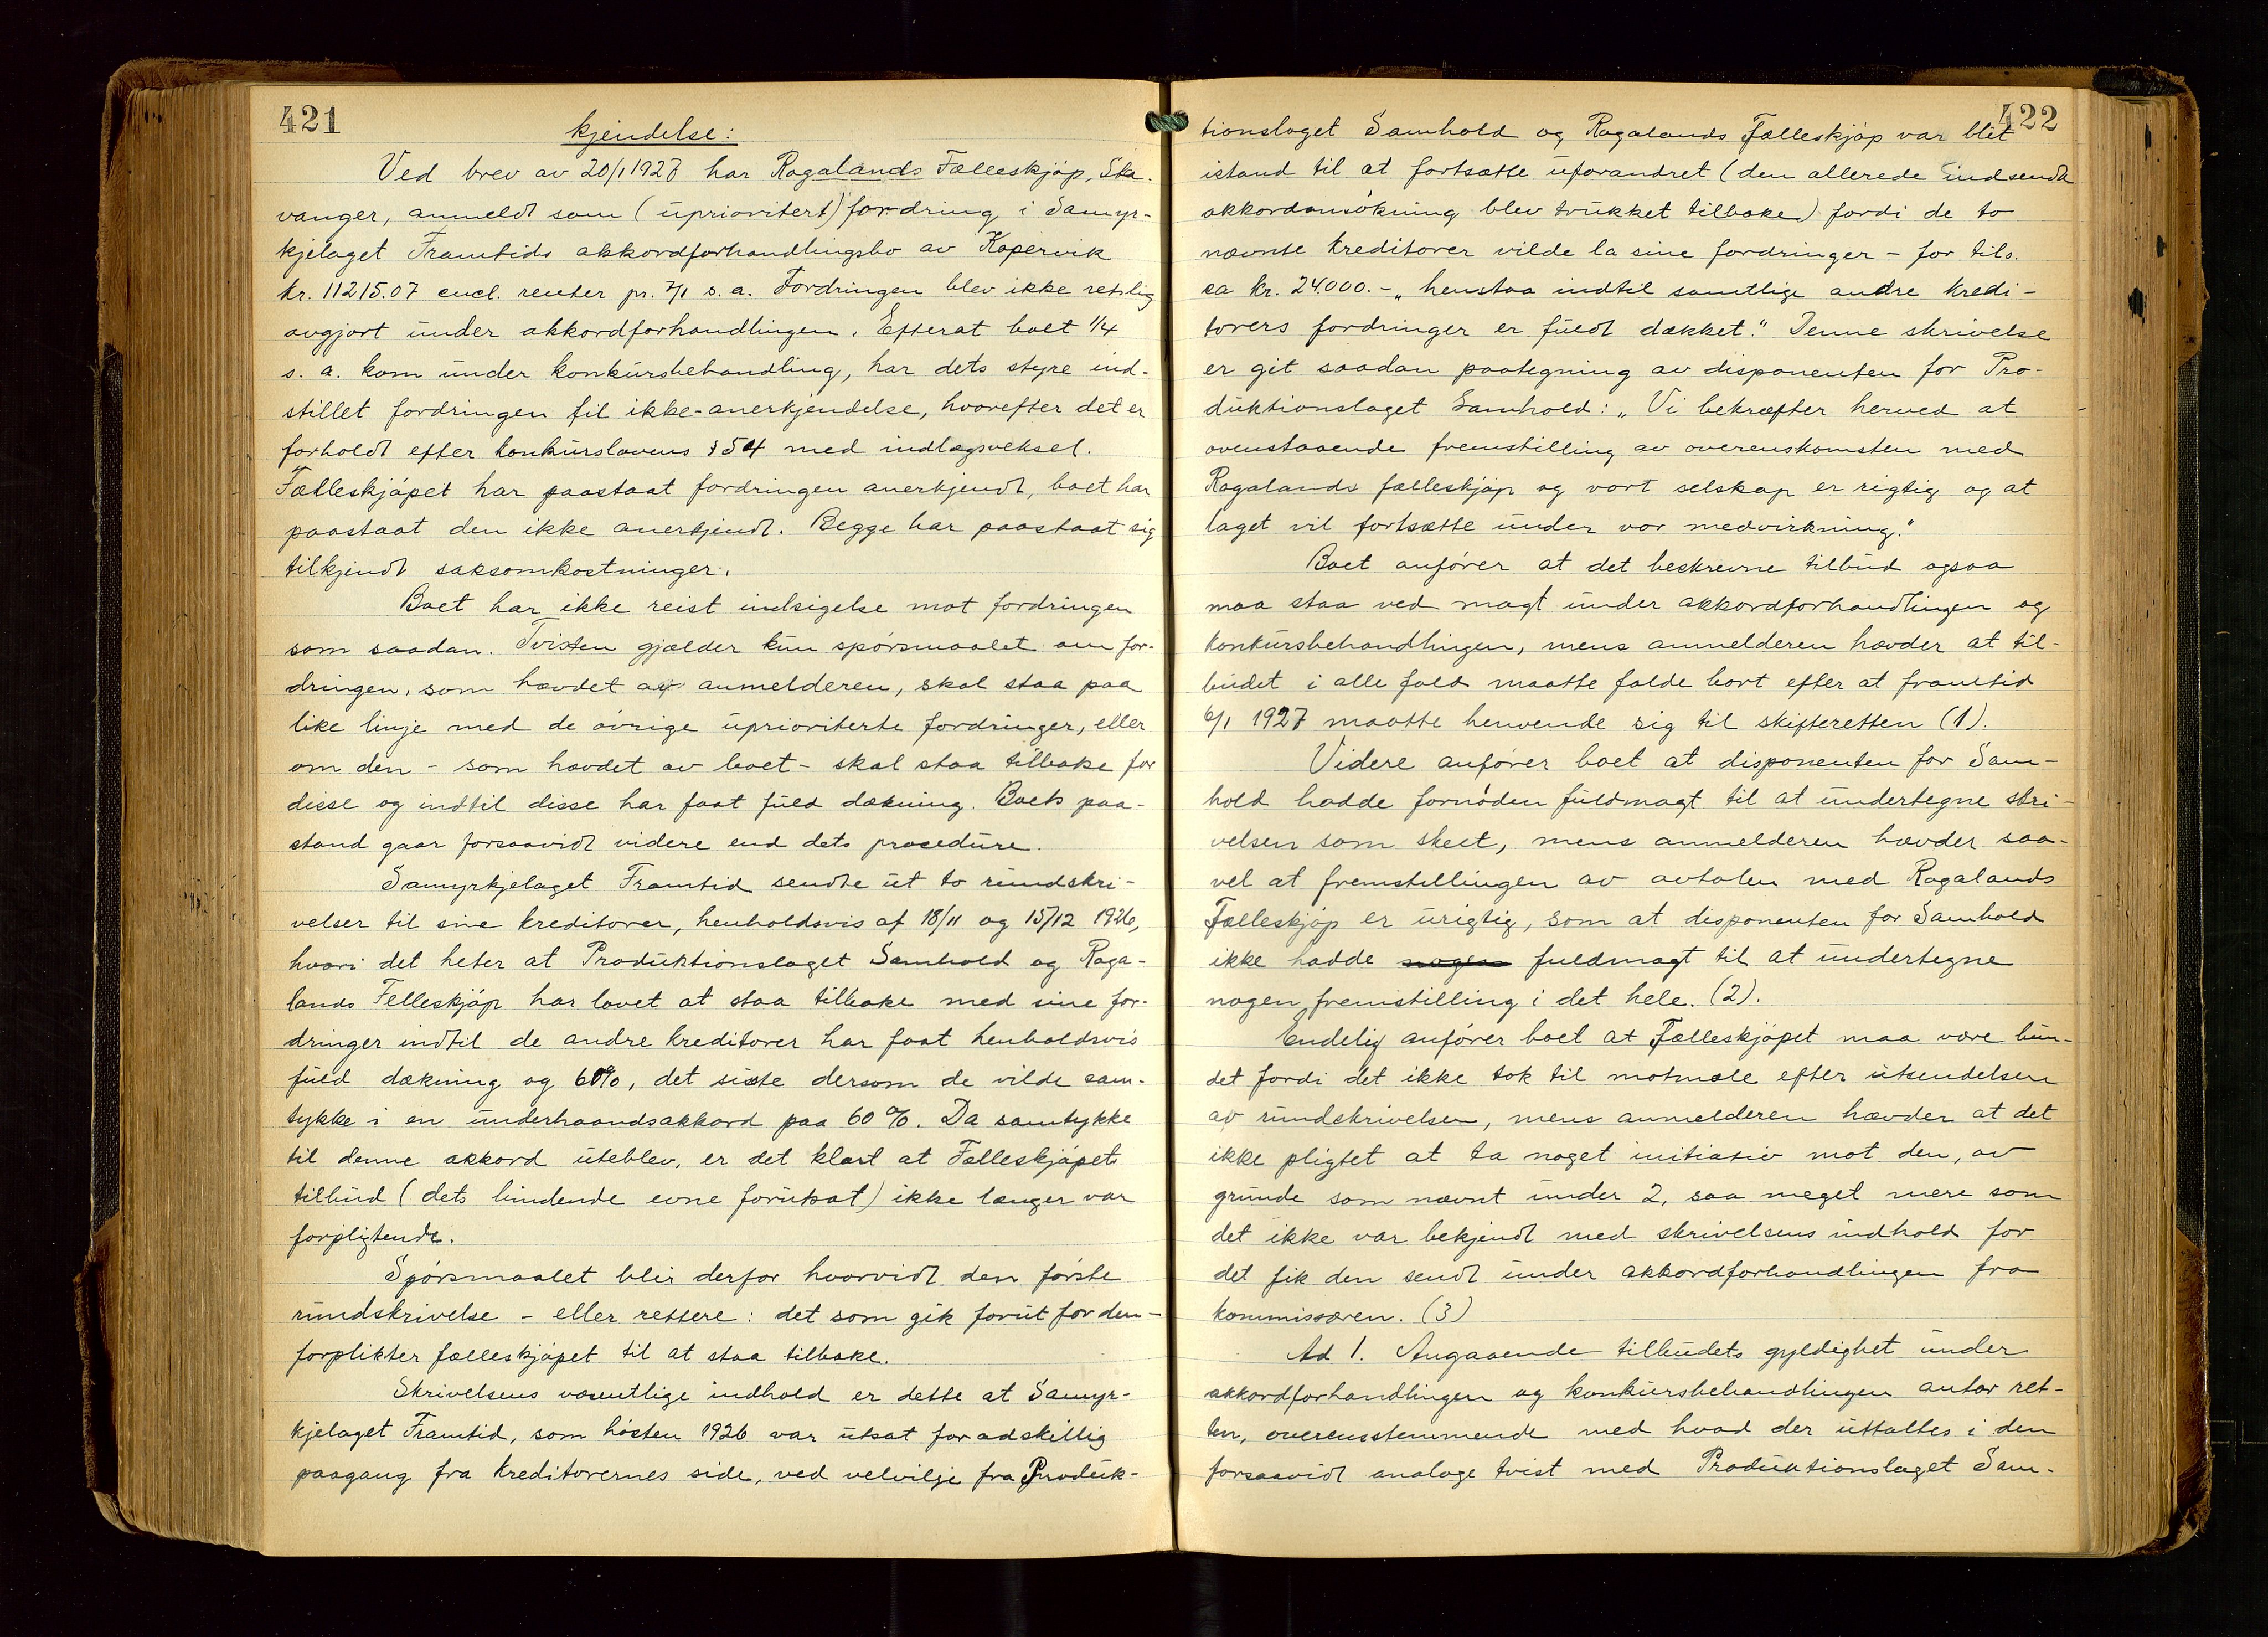 421
kjendelse:
Ved brev av 20/1 1927 har Rogalands Fælleskjøp, Sta-
vanger, anmeldt som (uprioritert) fordring i Samyr-
kjelaget Framtids akkordforhandlingsbo av Kopervik
kr. 11215.07 encl. renter pr. 7/1 s. a. Fordringen blev ikke retslig
avgjort under akkordforhandlingen. Efterat boet 1/4
s. a. kom under konkursbehandling, har dets styre ind-
stillet fordringen til ikke-anerkjendelse, hvorefter det er
forholdt efter konkurslovens § 54 med indlægsveksel.
Fælleskjøpet har paastaat fordringen anerkjendt, boet har
paastaat den ikke anerkjendt. Begge har paastaat sig
tilkjendt saksomkostninger.
Boet har ikke reist indsigelse mot fordringen
som saadan. Tvisten gjælder kun spørsmaalet om for-
dringen, som hævdet av anmelderen, skal staa paa
like linje med de øvrige uprioriterte fordringer, eller
om den - som hævdet av boet - skal staa tilbake for
disse og indtil disse har faat fuld dækning. Boets paa-
stand gaar forsaavidt videre end dets procedure.
Samyrkjelaget Framtid sendte ut to rundskri-
velser til sine kreditorer, henholdsvis af 18/11 og 15/12 1926,
hvori det heter at Produktionslaget Samhold og Roga-
lands Felleskjøp har lovet at staa tilbake med sine for-
dringer indtil de andre kreditorer har faat henholdsvis
fuld dækning og 60%, det siste dersom de vilde sam-
tykke i en underhaandsakkord paa 60 %. Da samtykke
til denne akkord uteblev, er det klart at Fælleskjøpets
tilbud (dets bindende evne forutsat) ikke længer var
forpligtende.
Spørsmaalet blir derfor hvorvidt den første
rundskrivelse - eller rettere: det som gik forut for den -
forplikter fælleskjøpet til at staa tilbake.
Skrivelsens væsentlige indhold er dette at Samyr-
kjelaget Framtid, som høsten 1926 var utsat for adskillig
paagang fra kreditorernes side, ved velvilje fra Produk-
422
tionslaget Samhold og Rogalands Fælleskjøp var blit
istand til at fortsætte uforandret (den allerede indsendte
akkordansøkning blev trukket tilbake) fordi de to
nævnte kreditorer vilde la sine fordringer - for tils.
ca kr. 24.000.- „henstaa indtil samtlige andre kredi-
torers fordringer er fuldt dækket." Denne skrivelse
er git saadan paategning av disponenten for Pro-
duktionslaget Samhold: „Vi bekræfter herved at
ovenstaaende fremstilling av overenskomsten med
Rogalands fælleskjøp og vort selskap er rigtig og at
laget vil fortsætte under vor medvirkning."
Boet anfører at det beskrevne tilbud ogsaa
maa staa ved magt under akkordforhandlingen og
konkursbehandlingen, mens anmelderen hævder at til-
budet i alle fald maatte falde bort efter at framtid
6/1 1927 maatte henvende sig til skifteretten (1).
Videre anfører boet at disponenten for Sam-
hold hadde fornøden fuldmagt til at undertegne skri-
velsen som skeet, mens anmelderen hævder saa-
vel at fremstillingen av avtalen med Rogalands
Fælleskjøp er urigtig, som at disponenten for Samhold
ikke hadde nogen fuldmagt til at undertegne
nogen fremstilling i det hele. (2).
Endelig anfører boet at Fælleskjøpet maa være bun-
det fordi det ikke tok til motmæle efter utsendelsen
av rundskrivelsen, mens anmelderen hævder at det
ikke pligtet at ta noget initiativ mot den, av
grunde som nævnt under 2, saa meget mere som
det ikke var bekjendt med skrivelsens indhold for
det fik den sendt under akkordforhandlingen fra
kommissæren. (3)
Ad 1. Angaaende tilbudets gyldighet under
akkordforhandlingen og konkursbehandlingen antar ret-
ten, overensstemmende med hvad der uttaltes i den
forsaavidt analoge tvist med Produktionslaget Sam-